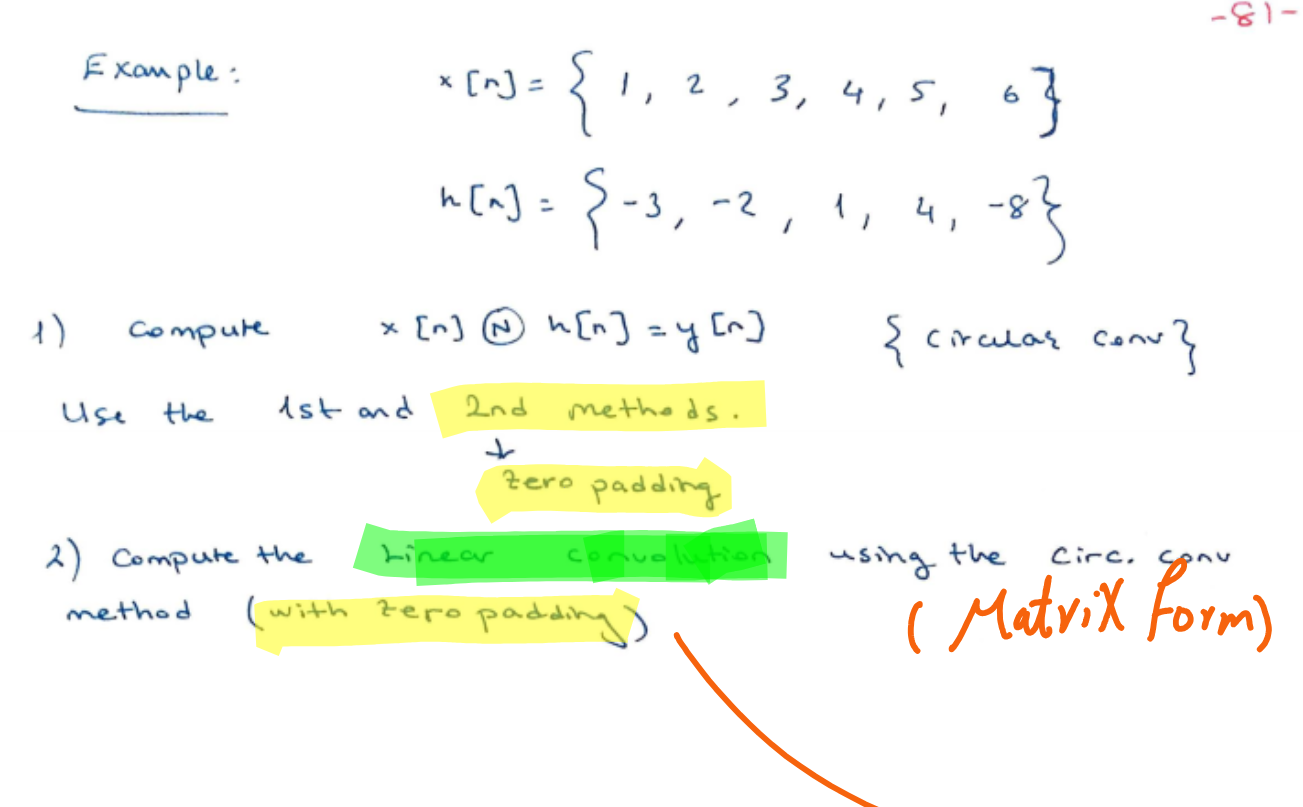 -81-
Example:
x[n] = { 1, 2, 3, 4, 5, 6 }
h[n] = { -3, -2, 1, 4, -8 }
1) Compute x[n] Ⓝ h[n] = y[n] { circular conv }
Use the 1st and 2nd methods.
↓
Zero padding
2) Compute the Linear convolution using the circ. conv
method (with zero padding)
(Matrix Form)